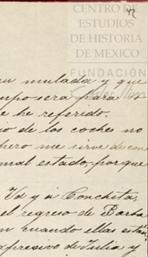 CENTRO DE
ESTUDIOS
DE HISTORIA
DE MEXICO
FUNDACIÓN
mulada y que
será para
he referido.
de los coches no
pero me sirve de con
mal estado porque
Vd y a Conchita,
el regreso de Barba
cuando ellas están
expresivos de Julia y